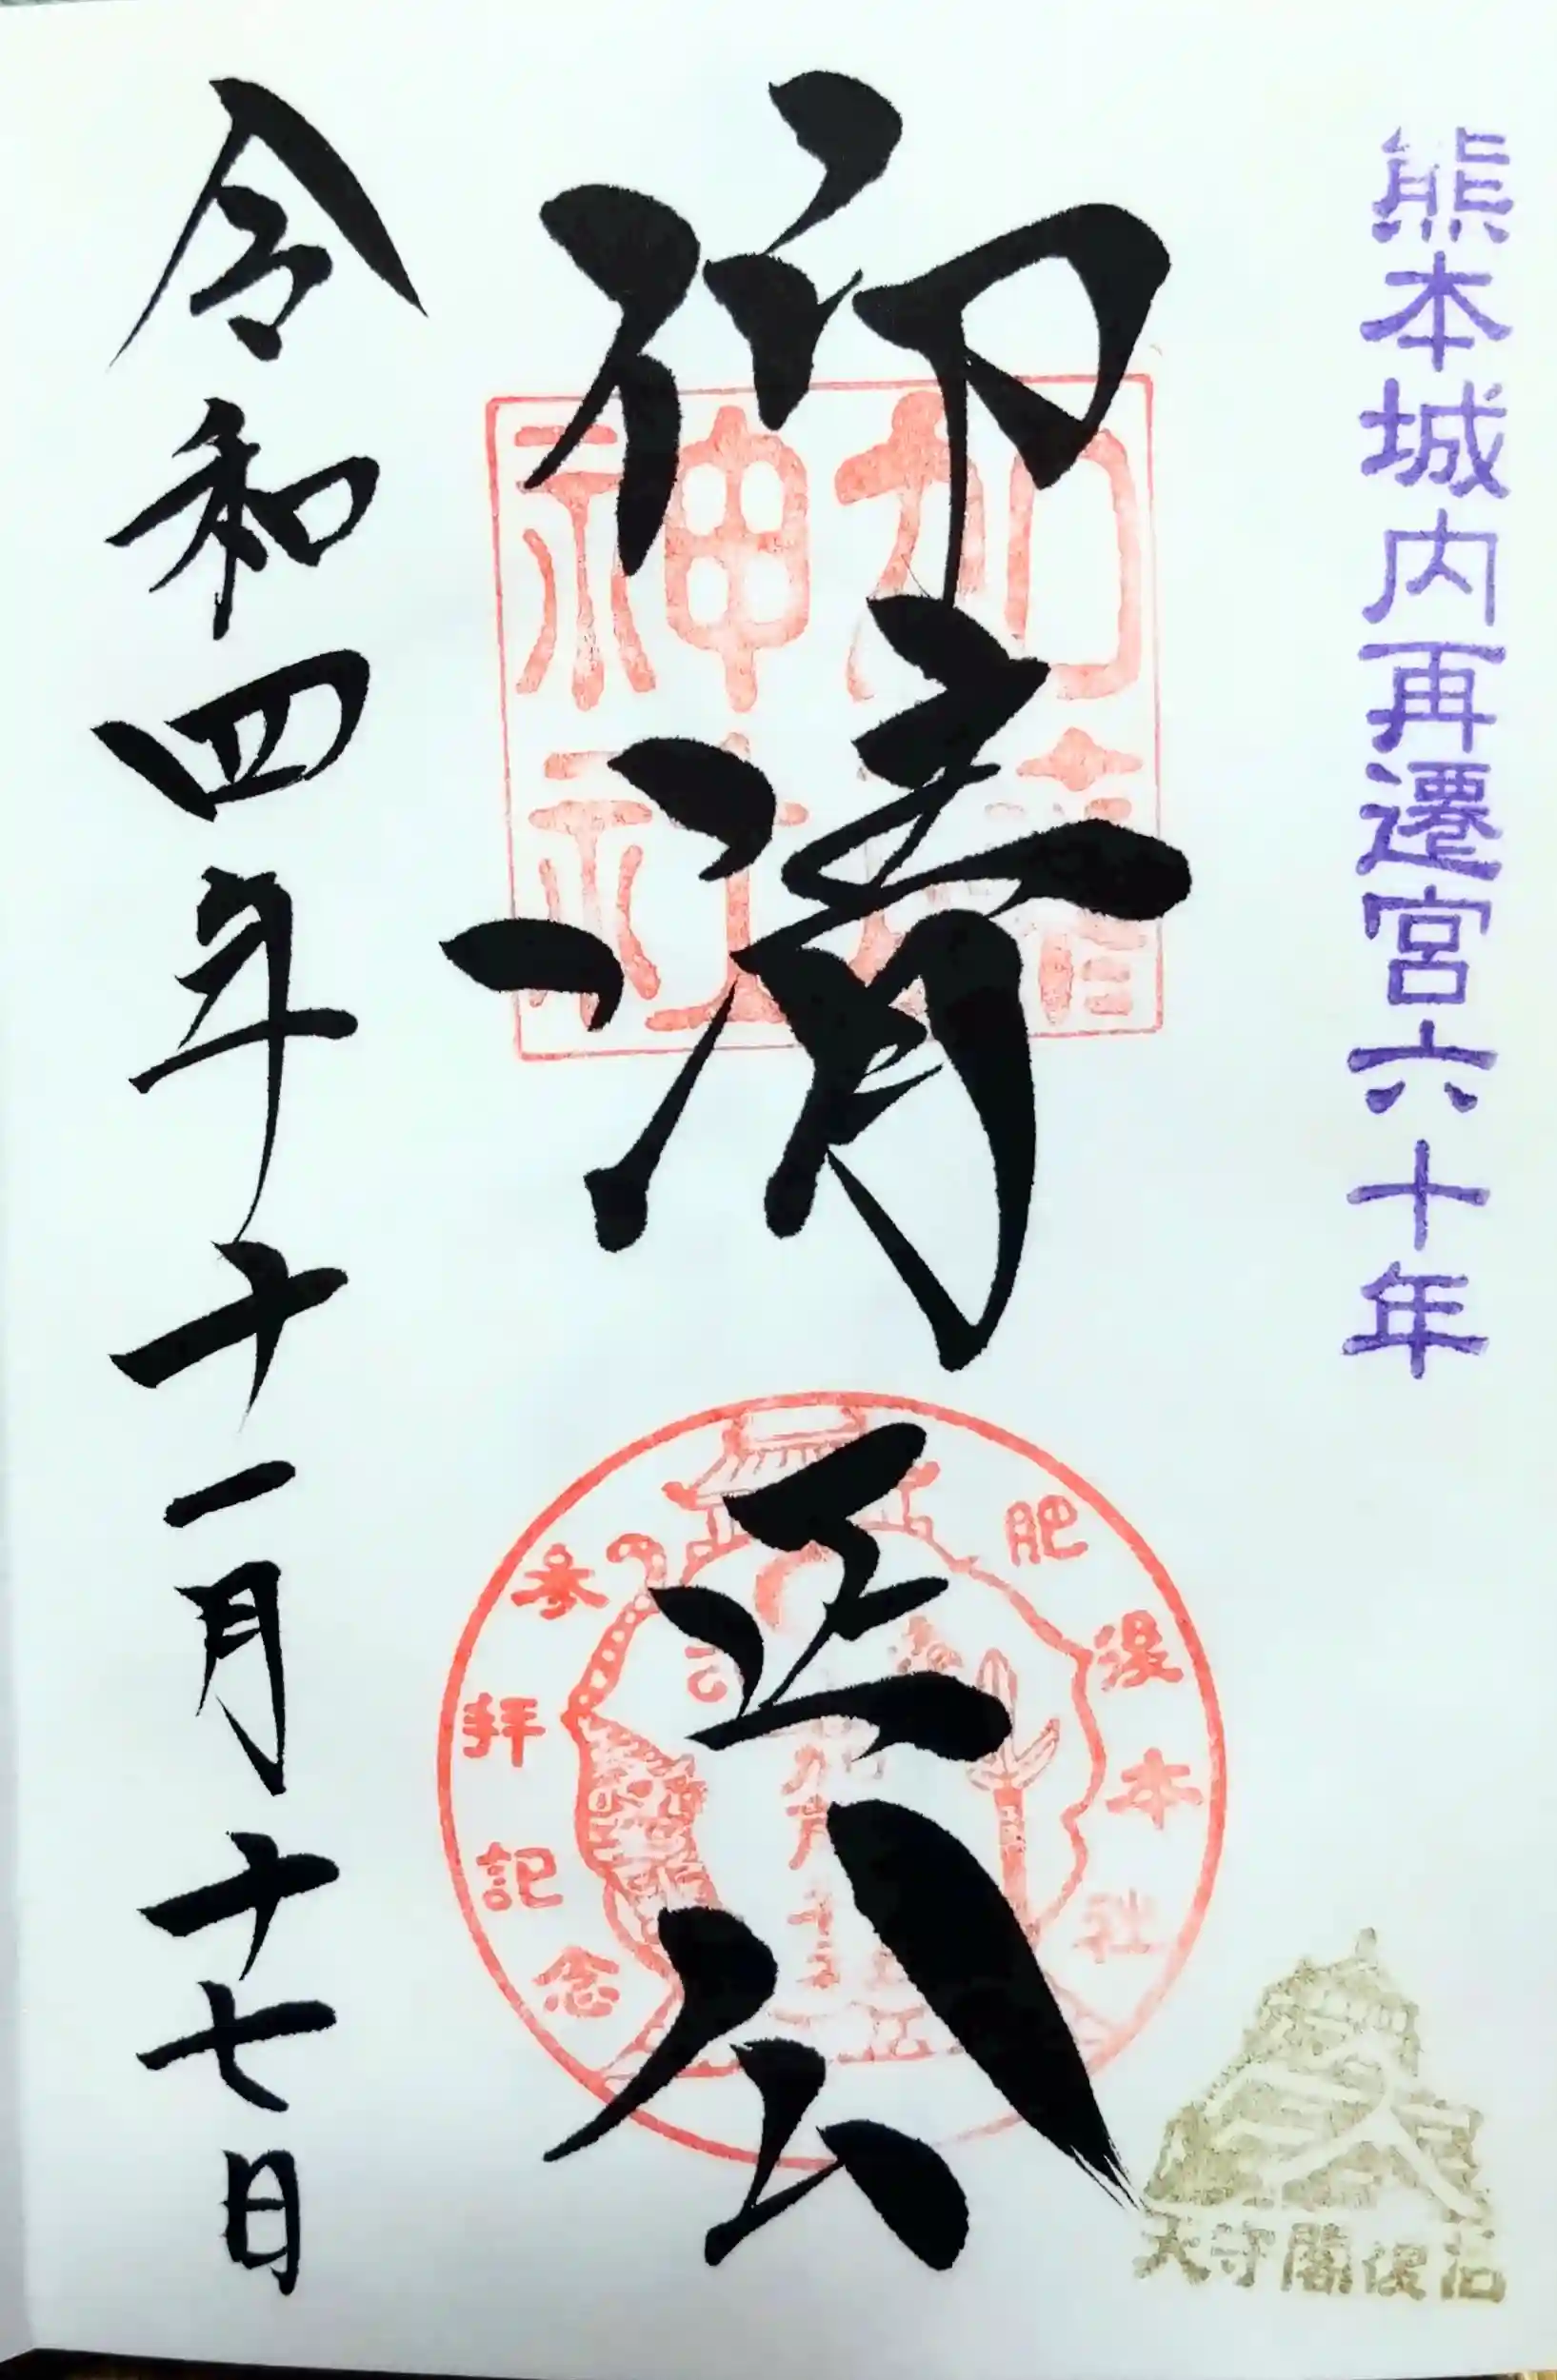 熊本城内再遷宮六十年
仰清正公
加藤
神社
肥後本社
参拝記念
天守閣復活
令和四年十一月十七日